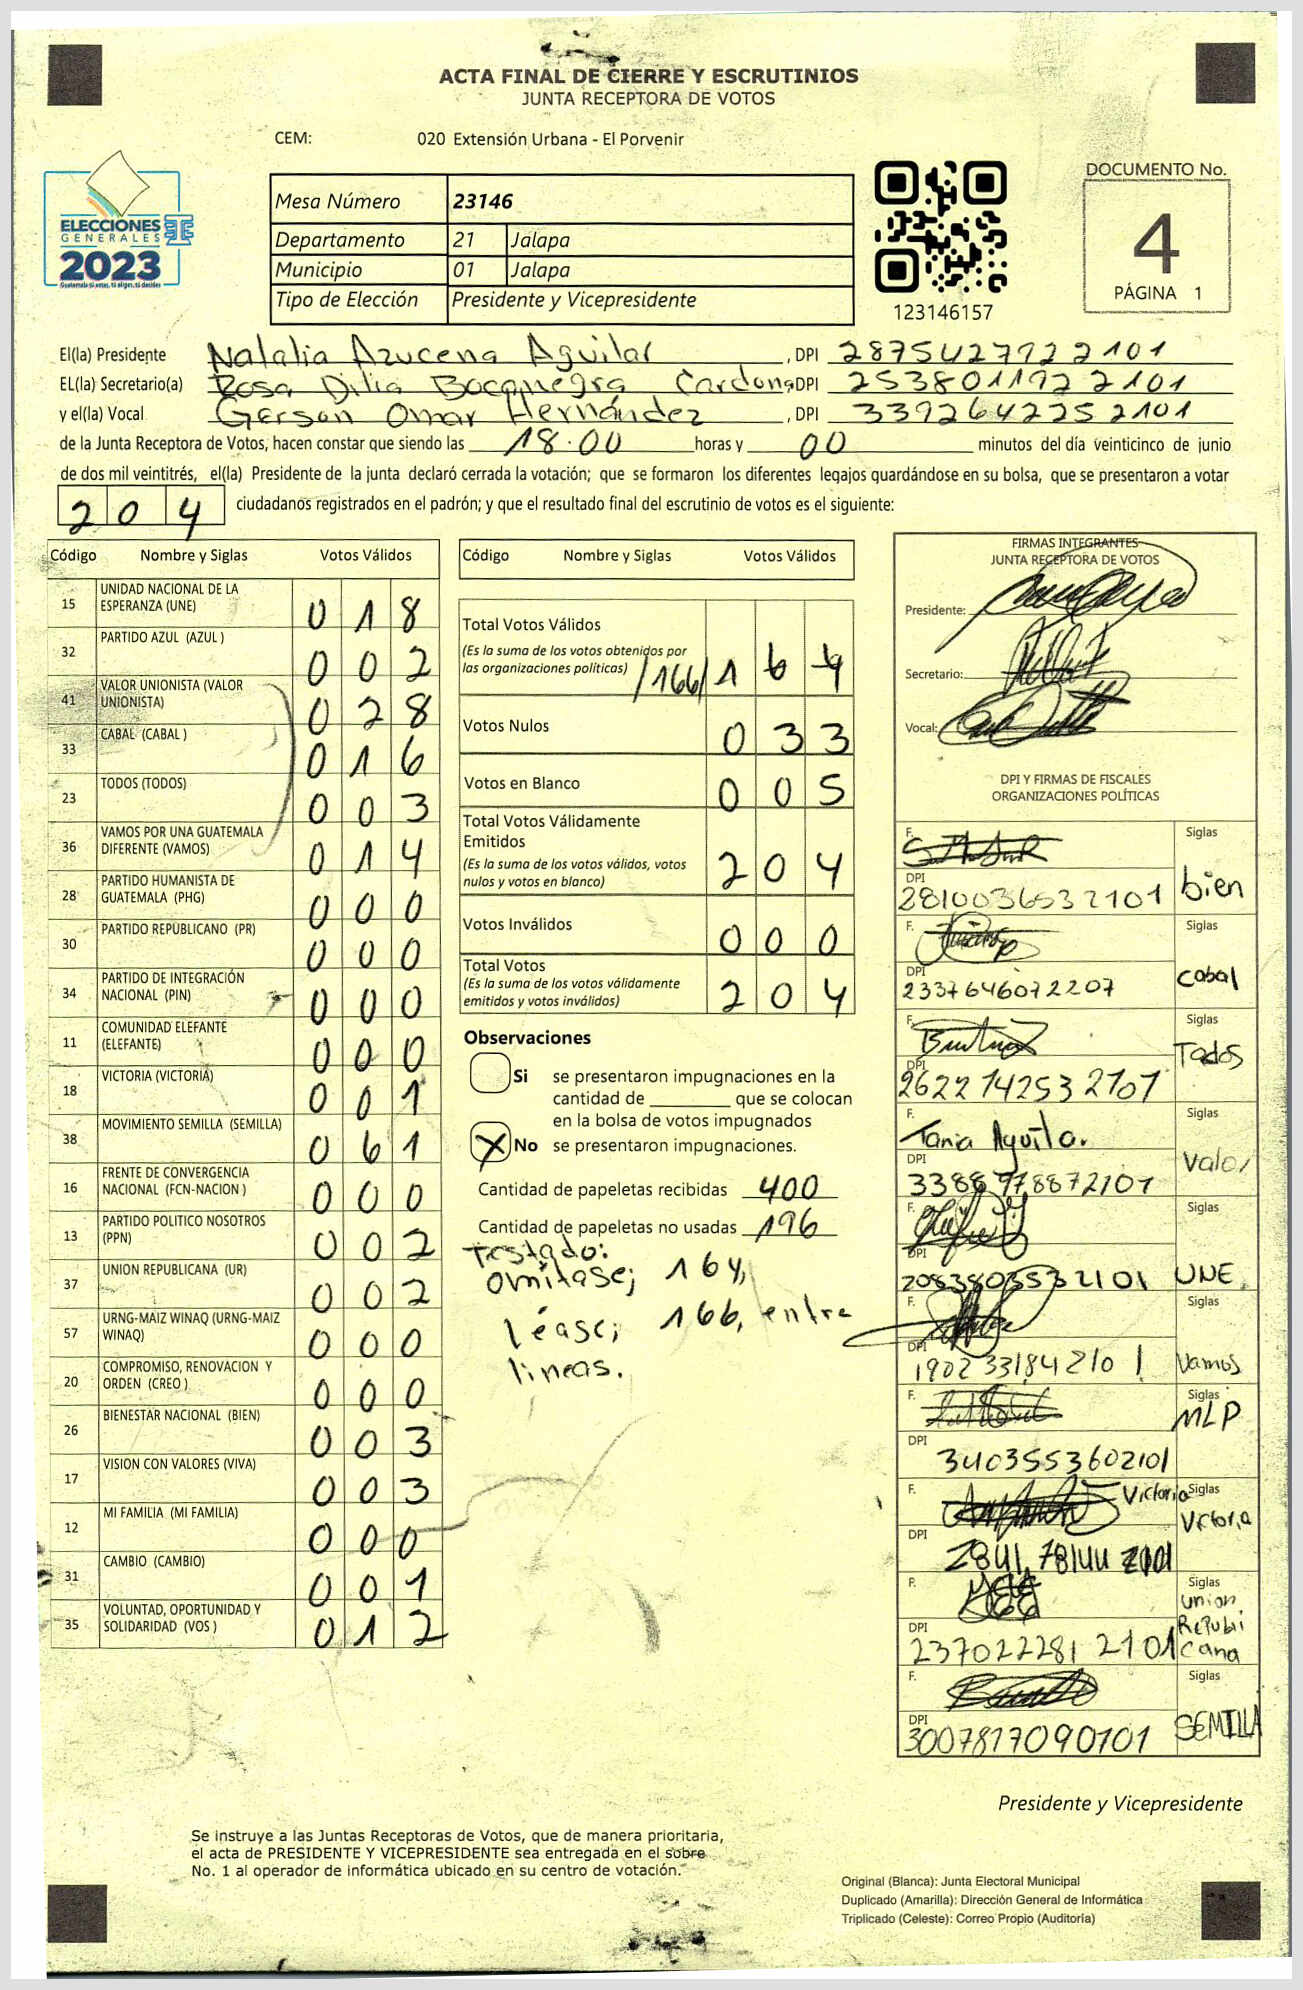 ACTA FINAL DE CIERRE Y ESCRUTINIOS
JUNTA RECEPTORA DE VOTOS
CEM: 020 Extensión Urbana - El Porvenir
ELECCIONES
GENERALES
2023
Guatemala tú votas, tú eliges, tú decides
Mesa Número 23146
Departamento 21 Jalapa
Municipio 01 Jalapa
Tipo de Elección Presidente y Vicepresidente
123146157
DOCUMENTO No.
4
PÁGINA 1
El(la) Presidente Natalia Azucena Aguilar , DPI 2875427922101
EL(la) Secretario(a) Rosa Dilia Bocanegra Cardona, DPI 2538011922101
y el(la) Vocal Gerson Omar Hernández , DPI 3392642252101
de la Junta Receptora de Votos, hacen constar que siendo las 18:00 horas y 00 minutos del día veinticinco de junio
de dos mil veintitrés, el(la) Presidente de la junta declaró cerrada la votación; que se formaron los diferentes legajos guardándose en su bolsa, que se presentaron a votar
204 ciudadanos registrados en el padrón; y que el resultado final del escrutinio de votos es el siguiente:
Código Nombre y Siglas Votos Válidos
15 UNIDAD NACIONAL DE LA ESPERANZA (UNE) 018
32 PARTIDO AZUL (AZUL ) 002
41 VALOR UNIONISTA (VALOR UNIONISTA) 028
33 CABAL (CABAL ) 016
23 TODOS (TODOS) 003
36 VAMOS POR UNA GUATEMALA DIFERENTE (VAMOS) 014
28 PARTIDO HUMANISTA DE GUATEMALA (PHG) 000
30 PARTIDO REPUBLICANO (PR) 000
34 PARTIDO DE INTEGRACIÓN NACIONAL (PIN) 000
11 COMUNIDAD ELEFANTE (ELEFANTE) 000
18 VICTORIA (VICTORIA) 001
38 MOVIMIENTO SEMILLA (SEMILLA) 061
16 FRENTE DE CONVERGENCIA NACIONAL (FCN-NACION ) 000
13 PARTIDO POLITICO NOSOTROS (PPN) 002
37 UNION REPUBLICANA (UR) 002
57 URNG-MAIZ WINAQ (URNG-MAIZ WINAQ) 000
20 COMPROMISO, RENOVACION Y ORDEN (CREO ) 000
26 BIENESTAR NACIONAL (BIEN) 003
17 VISION CON VALORES (VIVA) 003
12 MI FAMILIA (MI FAMILIA) 000
31 CAMBIO (CAMBIO) 001
35 VOLUNTAD, OPORTUNIDAD Y SOLIDARIDAD (VOS ) 012
Código Nombre y Siglas Votos Válidos
Total Votos Válidos
(Es la suma de los votos obtenidos por
las organizaciones políticas) /166/ 164
Votos Nulos 033
Votos en Blanco 005
Total Votos Válidamente
Emitidos
(Es la suma de los votos válidos, votos
nulos y votos en blanco) 204
Votos Inválidos 000
Total Votos
(Es la suma de los votos válidamente
emitidos y votos inválidos) 204
Observaciones
Si se presentaron impugnaciones en la
cantidad de ________ que se colocan
en la bolsa de votos impugnados
X No se presentaron impugnaciones.
Cantidad de papeletas recibidas 400
Cantidad de papeletas no usadas 196
Testado:
omitase; 164,
léase; 166, entre
lineas.
FIRMAS INTEGRANTES
JUNTA RECEPTORA DE VOTOS
Presidente:
Secretario:
Vocal:
DPI Y FIRMAS DE FISCALES
ORGANIZACIONES POLÍTICAS
F. Siglas
DPI 2810036532101 bien
F. Siglas
DPI 2337646072207 Cabal
F. Siglas
DPI 2622142532101 Todos
F. Tania Aguila. Siglas
DPI 3388978872101 Valor
F. Siglas
DPI 2083803532101 UNE
F. Siglas
DPI 1902331842101 Vamos
F. Siglas
DPI 3403553602101 MLP
F. Victoria Siglas
DPI Victoria
F. Siglas
DPI 2370222812101 Union Republicana
F. Siglas
DPI 3007817090101 SEMILLA
Presidente y Vicepresidente
Se instruye a las Juntas Receptoras de Votos, que de manera prioritaria,
el acta de PRESIDENTE Y VICEPRESIDENTE sea entregada en el sobre
No. 1 al operador de informática ubicado en su centro de votación.
Original (Blanca): Junta Electoral Municipal
Duplicado (Amarilla): Dirección General de Informática
Triplicado (Celeste): Correo Propio (Auditoría)